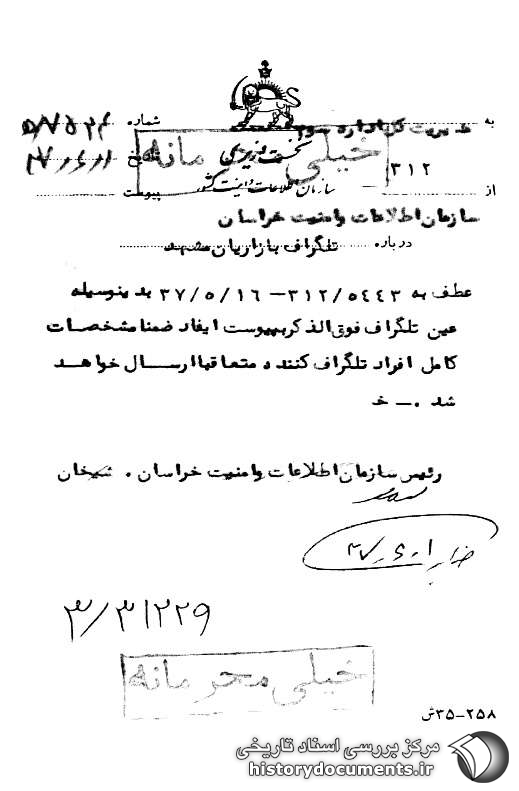 به مدیریت کل اداره سوم
شماره
نخست وزیری
خیلی محرمانه
۳۱۲
سازمان اطلاعات و امنیت کشور
از
پیوست
سازمان اطلاعات و امنیت خراسان
درباره تلگراف بازاریان مشهد
عطف به ۳۱۲/۵۴۴۳ – ۳۷/۵/۱۶ بدینوسیله
عین تلگراف فوق الذکر بپیوست ایفاد ضمنا مشخصات
کامل افراد تلگراف کننده متعاقبا ارسال خواهد
شد . – خ
رئیس سازمان اطلاعات و امنیت خراسان . شیخان
۳/۳۱۲۲۹
خیلی محرمانه
۲۵۸–۳۵ش
مرکز بررسی اسناد تاریخی
historydocuments.ir